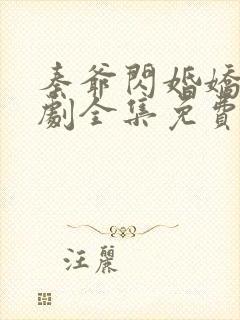 秦爺閃婚嬌
劇全集免費
汪麗